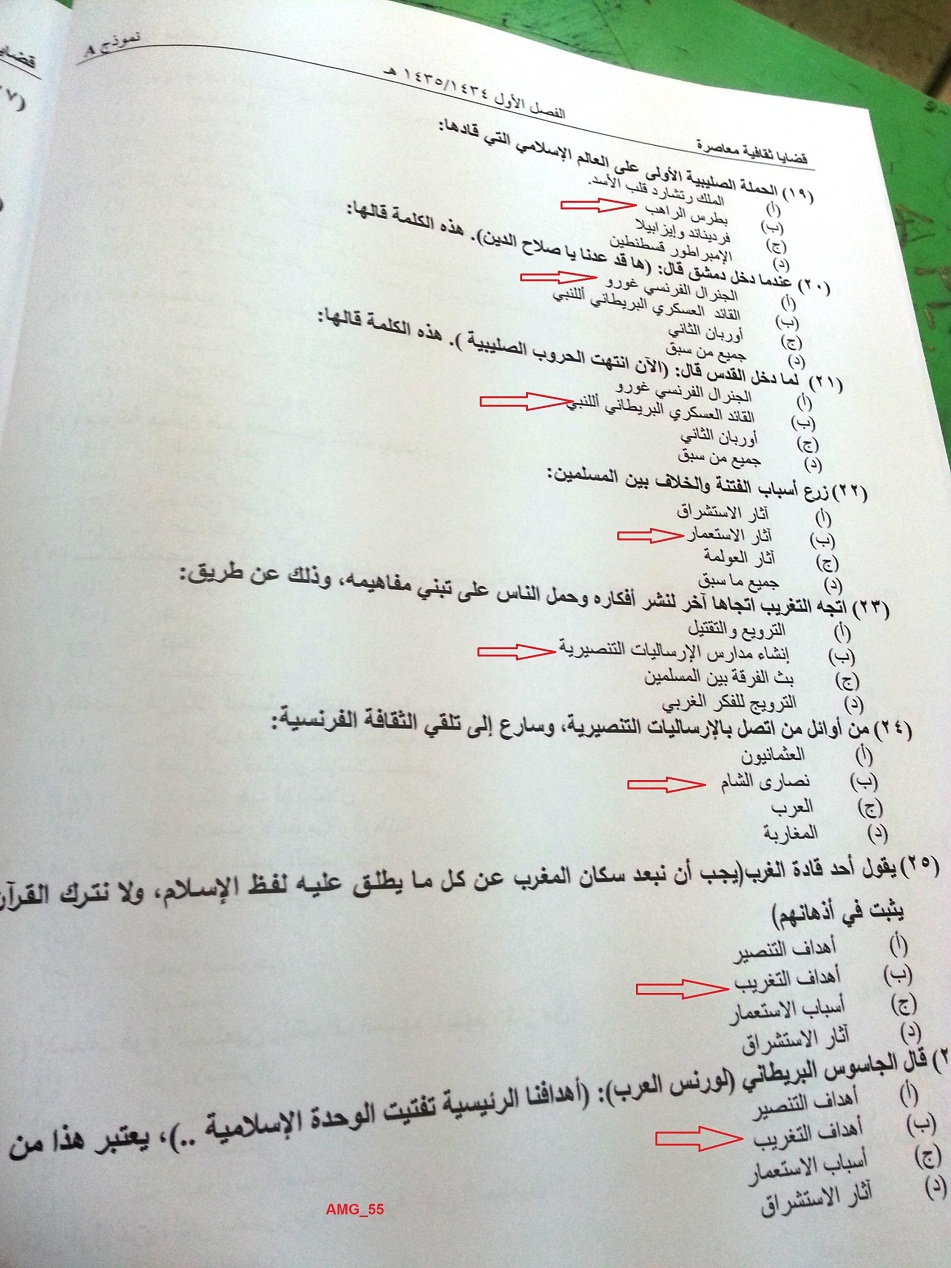 قضايا ثقافية معاصرة الفصل الأول ١٤٣٥/١٤٣٤ هـ نموذج A
(١٩) الحملة الصليبية الأولى على العالم الإسلامي التي قادها:
(أ) الملك رتشارد قلب الأسد.
(ب) بطرس الراهب
(ج) فرديناند وإيزابيلا
(د) الإمبراطور قسطنطين
(٢٠) عندما دخل دمشق قال: (ها قد عدنا يا صلاح الدين). هذه الكلمة قالها:
(أ) الجنرال الفرنسي غورو
(ب) القائد العسكري البريطاني أللنبي
(ج) أوربان الثاني
(د) جميع من سبق
(٢١) لما دخل القدس قال: (الآن انتهت الحروب الصليبية ). هذه الكلمة قالها:
(أ) الجنرال الفرنسي غورو
(ب) القائد العسكري البريطاني أللنبي
(ج) أوربان الثاني
(د) جميع من سبق
(٢٢) زرع أسباب الفتنة والخلاف بين المسلمين:
(أ) آثار الاستشراق
(ب) آثار الاستعمار
(ج) آثار العولمة
(د) جميع ما سبق
(٢٣) اتجه التغريب اتجاها آخر لنشر أفكاره وحمل الناس على تبني مفاهيمه، وذلك عن طريق:
(أ) الترويع والتقتيل
(ب) إنشاء مدارس الإرساليات التنصيرية
(ج) بث الفرقة بين المسلمين
(د) الترويج للفكر الغربي
(٢٤) من أوائل من اتصل بالإرساليات التنصيرية، وسارع إلى تلقي الثقافة الفرنسية:
(أ) العثمانيون
(ب) نصارى الشام
(ج) العرب
(د) المغاربة
(٢٥) يقول أحد قادة الغرب(يجب أن نبعد سكان المغرب عن كل ما يطلق عليه لفظ الإسلام، ولا نترك القرآن
يثبت في أذهانهم)
(أ) أهداف التنصير
(ب) أهداف التغريب
(ج) أسباب الاستعمار
(د) آثار الاستشراق
قال الجاسوس البريطاني (لورنس العرب): (أهدافنا الرئيسية تفتيت الوحدة الإسلامية ..)، يعتبر هذا من
(أ) أهداف التنصير
(ب) أهداف التغريب
(ج) أسباب الاستعمار
(د) آثار الاستشراق
AMG_55